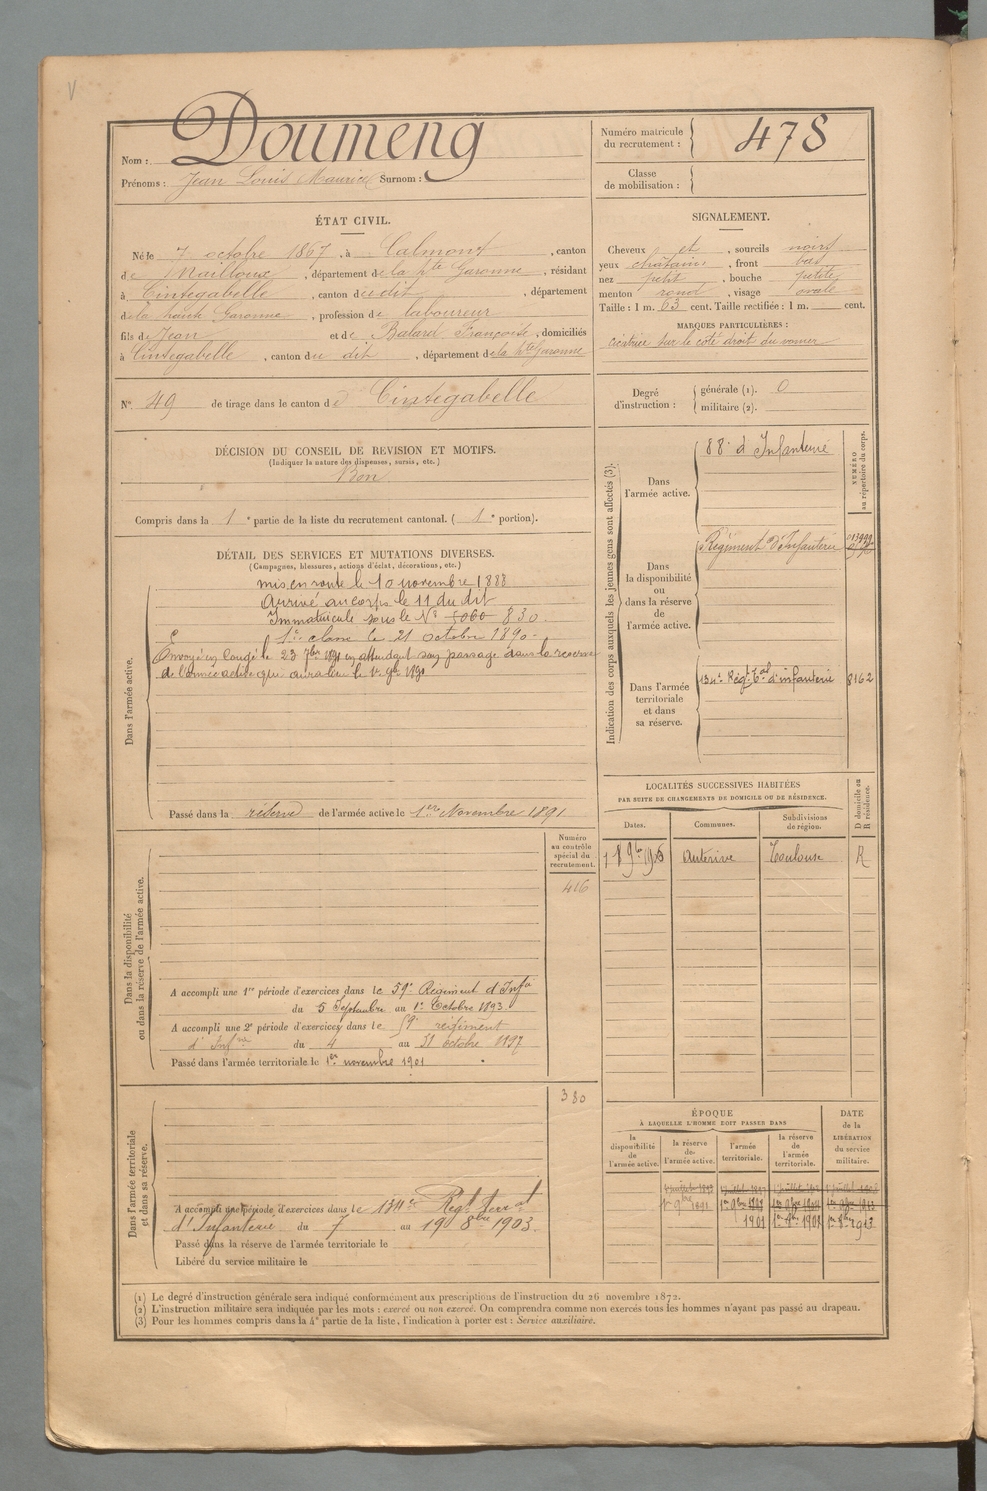 Nom : Doumeng
Prénoms : Jean Louis Maurice Surnom :
Numéro matricule du recrutement : 478
Classe de mobilisation :
ÉTAT CIVIL.
Né le 7 octobre 1867, à Calmont, canton
de Nailloux, département de la hte Garonne, résidant
à Cintegabelle, canton du dit, département
de la haute Garonne, profession de laboureur
fils de Jean et de Balard Françoise, domiciliés
à Cintegabelle, canton du dit, département de la hte Garonne
N° 49 de tirage dans le canton de Cintegabelle
SIGNALEMENT.
Cheveux et, sourcils noirs
yeux chatains, front bas
nez petit, bouche petite
menton rond, visage ovale
Taille : 1 m. 63 cent. Taille rectifiée : 1 m. cent.
MARQUES PARTICULIÈRES :
cicatrice sur le coté droit du
Degré d'instruction : générale (1). 0
militaire (2).
DÉCISION DU CONSEIL DE REVISION ET MOTIFS.
(Indiquer la nature des dispenses, sursis, etc.)
Bon
Compris dans la 1e partie de la liste du recrutement cantonal. (1e portion).
DÉTAIL DES SERVICES ET MUTATIONS DIVERSES.
(Campagnes, blessures, actions d'éclat, décorations, etc.)
Dans l'armée active.
mis en route le 10 novembre 1888
Arrivé au corps le 11 du dit
Immatriculé sous le N° 5060 830.
1re classe le 21 octobre 1890.
Envoyé en congé le 23 7bre 1891 en attendant son passage dans la reserve
de l'armée active qui aura lieu le 1er 9bre 1891
Passé dans la réserve de l'armée active le 1er Novembre 1891
Indication des corps auxquels les jeunes gens sont affectés (3).
NUMÉRO au répertoire du corps.
Dans l'armée active.
88e d'Infanterie
Dans la disponibilité ou dans la réserve de l'armée active.
Régiment d'Infanterie
Dans l'armée territoriale et dans sa réserve.
134e Régt tal d'infanterie 8162
LOCALITÉS SUCCESSIVES HABITÉES
PAR SUITE DE CHANGEMENTS DE DOMICILE OU DE RÉSIDENCE.
Dates. Communes. Subdivisions de région. D domicile ou R résidence.
Auterive Toulouse R
Dans la disponibilité ou dans la réserve de l'armée active.
Numéro au contrôle spécial du recrutement.
416
A accompli une 1re période d'exercices dans le 59e Régiment d'Infie
du 5 Septembre au 1er Octobre 1893
A accompli une 2e période d'exercices dans le 59e régiment
d'Infrie du 4 au 31 octobre 1897
Passé dans l'armée territoriale le 1er novembre 1901
Dans l'armée territoriale et dans sa réserve.
380
A accompli une période d'exercices dans le 134e Regt Terral
d'Infanterie du 7 au 19 8bre 1903.
Passé dans la réserve de l'armée territoriale le
Libéré du service militaire le
ÉPOQUE
À LAQUELLE L'HOMME DOIT PASSER DANS
DATE de la LIBÉRATION du service militaire.
la disponibilité de l'armée active. la réserve de l'armée active. l'armée territoriale. la réserve de l'armée territoriale.
1er 9bre 1891
1901
(1) Le degré d'instruction générale sera indiqué conformément aux prescriptions de l'instruction du 26 novembre 1872.
(2) L'instruction militaire sera indiquée par les mots : exercé ou non exercé. On comprendra comme non exercés tous les hommes n'ayant pas passé au drapeau.
(3) Pour les hommes compris dans la 4e partie de la liste, l'indication à porter est : Service auxiliaire.